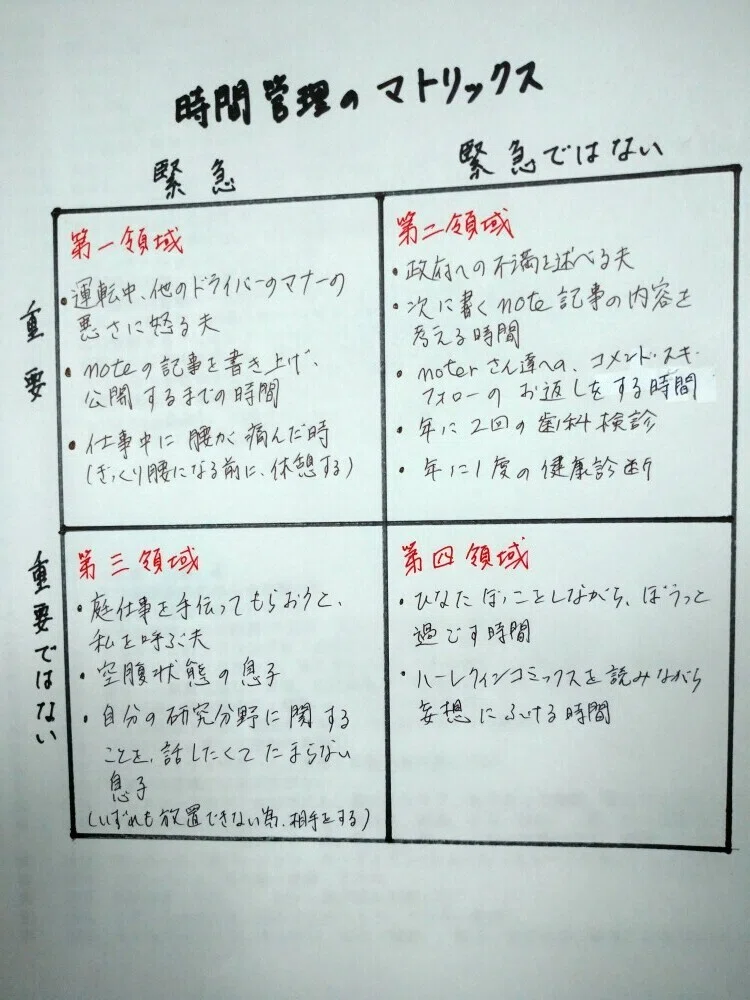 時間管理のマトリックス
緊急
緊急ではない
重要
第一領域
・運転中、他のドライバーのマナーの
悪さに怒る夫
・noteの記事を書き上げ、
公開するまでの時間
・仕事中に腰が痛んだ時
(ぎっくり腰になる前に、休憩する)
第二領域
・政府への不満を述べる夫
・次に書くnote記事の内容を
考える時間
・noterさん達への、コメント・スキ・
フォローのお返しをする時間
・年に2回の歯科検診
・年に1度の健康診断
重要ではない
第三領域
・庭仕事を手伝ってもらおうと、
私を呼ぶ夫
・空腹状態の息子
・自分の研究分野に関する
ことを、話したくてたまらない
息子
(いずれも放置できない為、相手をする)
第四領域
・ひなたぼっこをしながら、ぼうっと
過ごす時間
・ハーレクインコミックスを読みながら
妄想にふける時間